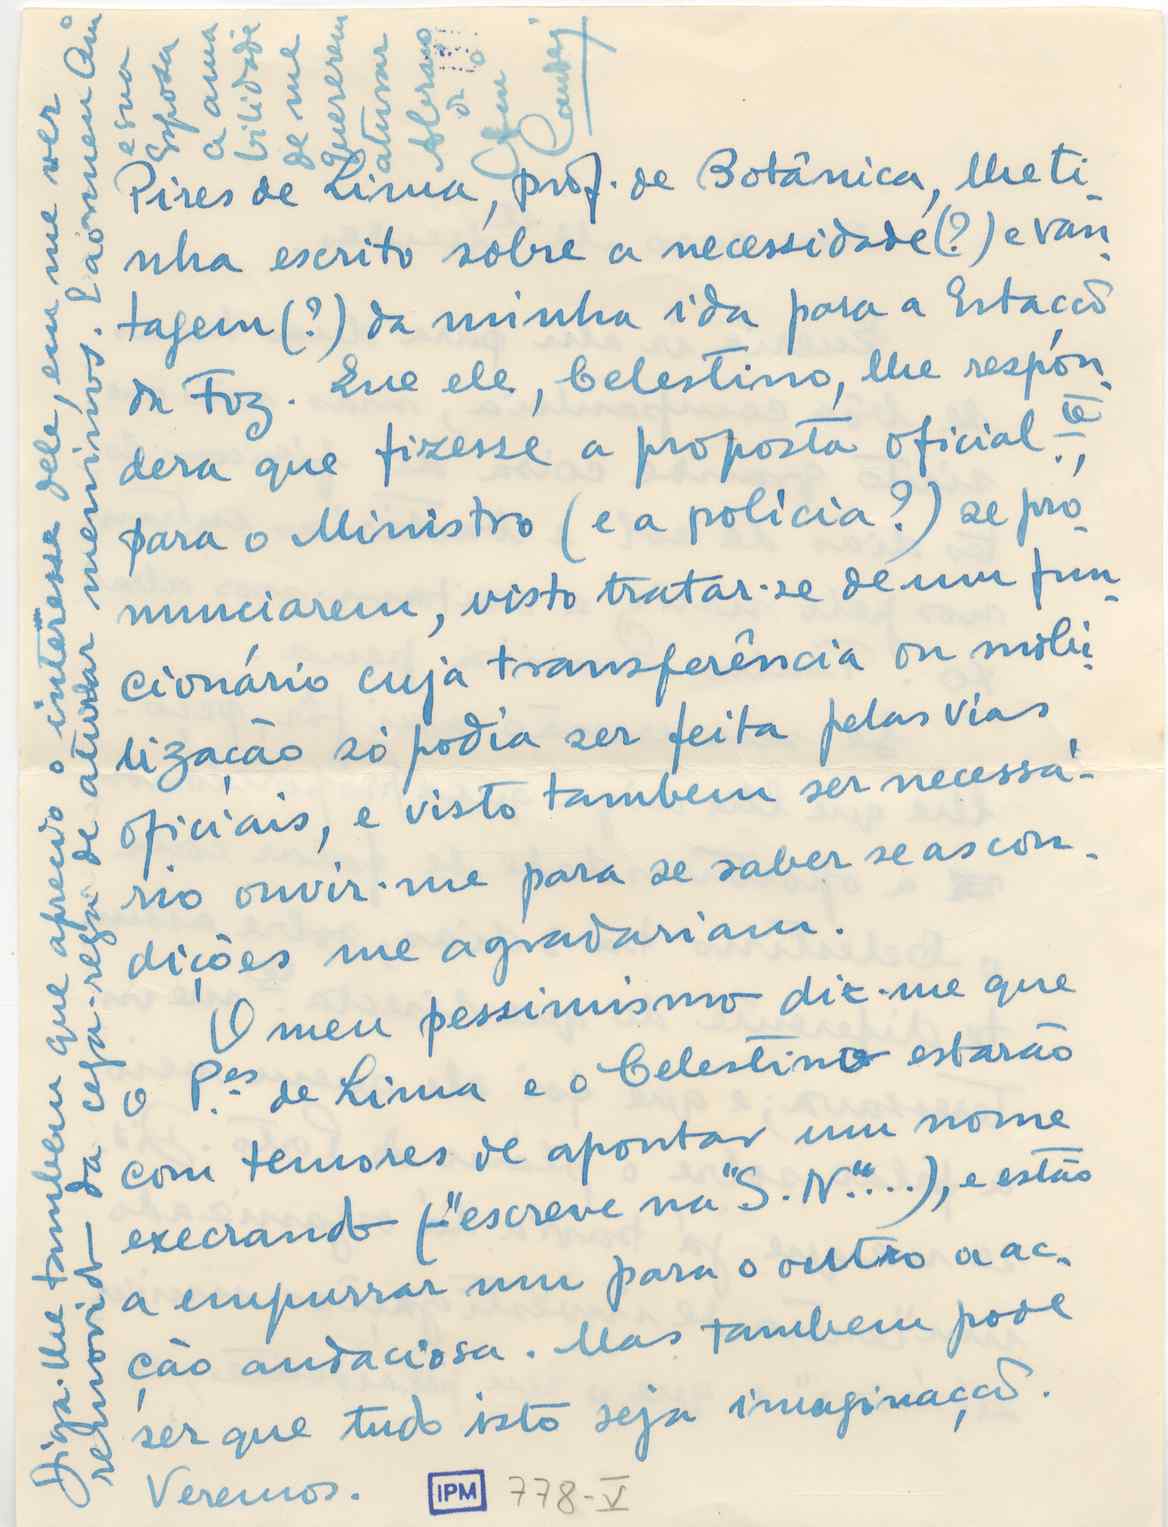 Pires de Lima, prof. de Botânica, lhe ti-
nha escrito sôbre a necessidade(?) e van-
tagem(?) da minha ida para a Estação
da Foz. Que ele, Celestino, lhe respon-
dera que fizesse a proposta oficial
para o Ministro (e a polícia?) se pro-
nunciarem, visto tratar-se de um fun-
cionário cuja transferência ou mobi-
lização só podia ser feita pelas vias
oficiais, e visto tambem ser necessá-
rio ouvir-me para se saber se as con-
dições me agradariam.
O meu pessimismo diz-me que
o P.es de Lima e o Celestino estarão
com temores de apontar um nome
execrando (-"escreve na "S. N."...), e estão
a empurrar um para o outro a ac-
ção audaciosa. Mas tambem pode
ser que tudo isto seja imaginação.
Veremos.
Diga-lhe tambem que aprecio o interêsse dele, em me ver
removido da cega-rega de aturar meninos.
e sua
Esposa
a ama
bilidade
de me
quererem
aturar
Abraço
do
IPM 778-V